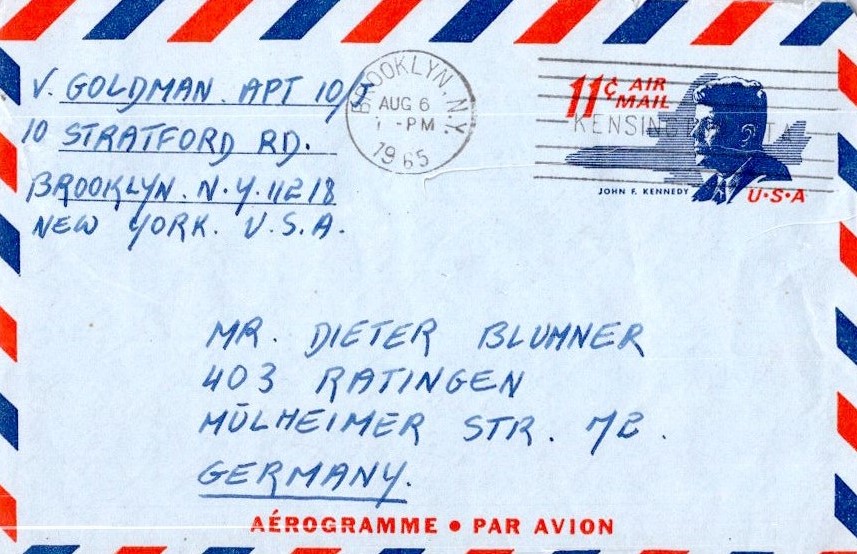 V. GOLDMAN. APT 10/
10 STRATFORD RD.
BROOKLYN. N.Y. 11218
NEW YORK. U.S.A.
BROOKLYN, N.Y.
AUG 6
-PM
1965
11¢ AIR
MAIL
JOHN F. KENNEDY
U·S·A
MR. DIETER BLUMNER
403 RATINGEN
MÜLHEIMER STR. 7B.
GERMANY.
AÉROGRAMME • PAR AVION